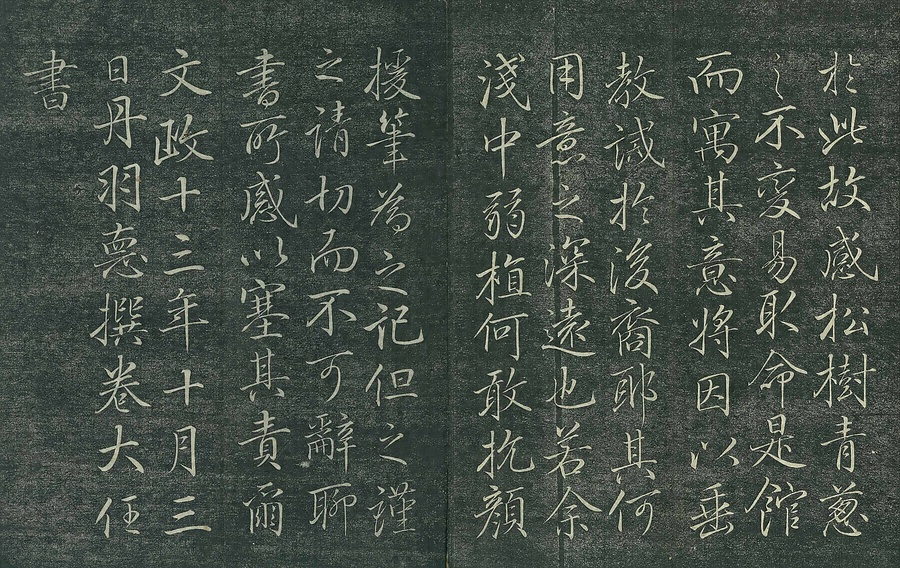 於此故感松樹青蔥
之不変易取命是館
而寓其意将因以垂
教誡於後裔耶其何
用意之深遠也若余
淺中弱植何敢抗顔
援筆為之記但之謹
之請切而不可辭聊
書所感以塞其責爾
文政十三年十月三
日丹羽悳撰卷大任
書